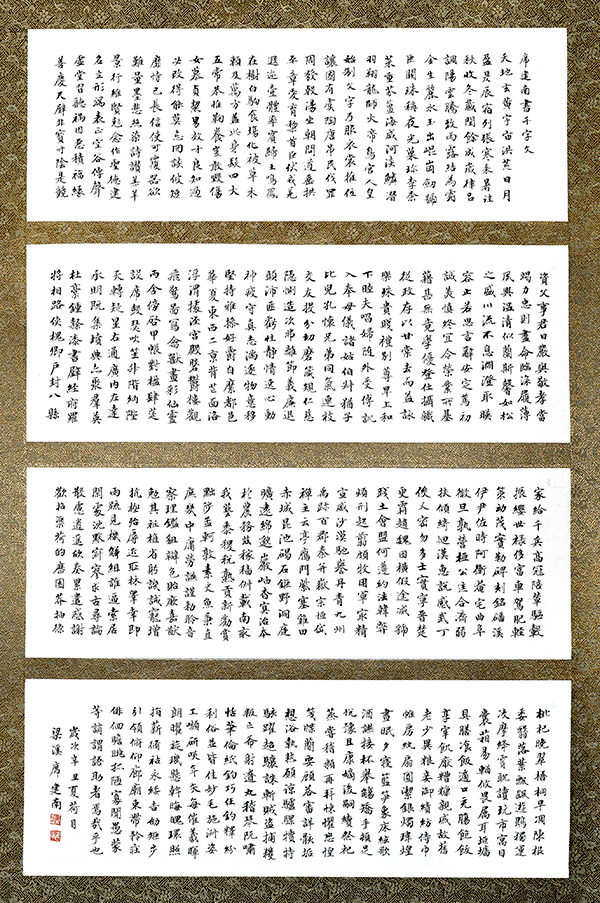 席建南書千字文
天地玄黃宇宙洪荒日月
盈昃辰宿列張寒來暑往
秋收冬藏閏餘成歲律呂
調陽雲騰致雨露結為霜
金生麗水玉出崑岡劍號
巨闕珠稱夜光菓珍李柰
菜重芥薑海鹹河淡鱗潛
羽翔龍師火帝鳥官人皇
始制文字乃服衣裳推位
讓國有虞陶唐弔民伐罪
周發殷湯坐朝問道垂拱
平章愛育黎首臣伏戎羌
遐邇壹體率賓歸王鳴鳳
在樹白駒食場化被草木
賴及萬方蓋此身髮四大
五常恭惟鞠養豈敢毀傷
女慕貞絜男效才良知過
必改得能莫忘罔談彼短
靡恃己長信使可覆器欲
難量墨悲絲染詩讚羔羊
景行維賢克念作聖德建
名立形端表正空谷傳聲
虛堂習聽禍因惡積福緣
善慶尺璧非寶寸陰是競
資父事君曰嚴與敬孝當
竭力忠則盡命臨深履薄
夙興溫凊似蘭斯馨如松
之盛川流不息淵澄取映
容止若思言辭安定篤初
誠美慎終宜令榮業所基
籍甚無竟學優登仕攝職
從政存以甘棠去而益詠
樂殊貴賤禮別尊卑上和
下睦夫唱婦隨外受傅訓
入奉母儀諸姑伯叔猶子
比兒孔懷兄弟同氣連枝
交友投分切磨箴規仁慈
隱惻造次弗離節義廉退
顛沛匪虧性靜情逸心動
神疲守真志滿逐物意移
堅持雅操好爵自縻都邑
華夏東西二京背芒面洛
浮渭據涇宮殿盤鬱樓觀
飛驚圖寫禽獸畫彩仙靈
丙舍傍啟甲帳對楹肆筵
設席鼓瑟吹笙升階納陛
弁轉疑星右通廣內左達
承明既集墳典亦聚群英
杜稾鍾隸漆書壁經府羅
將相路俠槐卿戶封八縣
家給千兵高冠陪輦驅轂
振纓世祿侈富車駕肥輕
策功茂實勒碑刻銘磻溪
伊尹佐時阿衡奄宅曲阜
微旦孰營桓公匡合濟弱
扶傾綺迴漢惠說感武丁
俊乂密勿多士寔寧晉楚
更霸趙魏困橫假途滅虢
踐土會盟何遵約法韓弊
煩刑起翦頗牧用軍最精
宣威沙漠馳譽丹青九州
禹跡百郡秦并嶽宗恆岱
禪主云亭雁門紫塞雞田
赤城昆池碣石鉅野洞庭
曠遠綿邈巖岫杳冥治本
於農務茲稼穡俶載南畝
我藝黍稷稅熟貢新勸賞
黜陟孟軻敦素史魚秉直
庶幾中庸勞謙謹敕聆音
察理鑑貌辨色貽厥嘉猷
勉其祗植省躬譏誡寵增
抗極殆辱近恥林皋幸即
兩疏見機解組誰逼索居
閒處沈默寂寥求古尋論
散慮逍遙欣奏累遣慼謝
歡招渠荷的歷園莽抽條
枇杷晚翠梧桐早凋陳根
委翳落葉飄颻遊鵾獨運
凌摩絳霄耽讀玩市寓目
囊箱易輶攸畏屬耳垣牆
具膳飡飯適口充腸飽飫
享宰飢厭糟糠親戚故舊
老少異糧妾御績紡侍巾
帷房紈扇圓潔銀燭煒煌
晝眠夕寐藍筍象床絃歌
酒讌接杯舉觴矯手頓足
悅豫且康嫡後嗣續祭祀
蒸嘗稽顙再拜悚懼恐惶
牋牒簡要顧答審詳骸垢
想浴執熱願涼驢騾犢特
駭躍超驤誅斬賊盜捕獲
叛亡布射遼丸嵇琴阮嘯
恬筆倫紙鈞巧任釣釋紛
利俗並皆佳妙毛施淑姿
工顰妍笑年矢每催曦暉
朗曜璇璣懸斡晦魄環照
指薪修祜永綏吉劭矩步
引領俯仰廊廟束帶矜莊
徘徊瞻眺孤陋寡聞愚蒙
等誚謂語助者焉哉乎也
歲次辛丑夏荷月
梁溪席建南